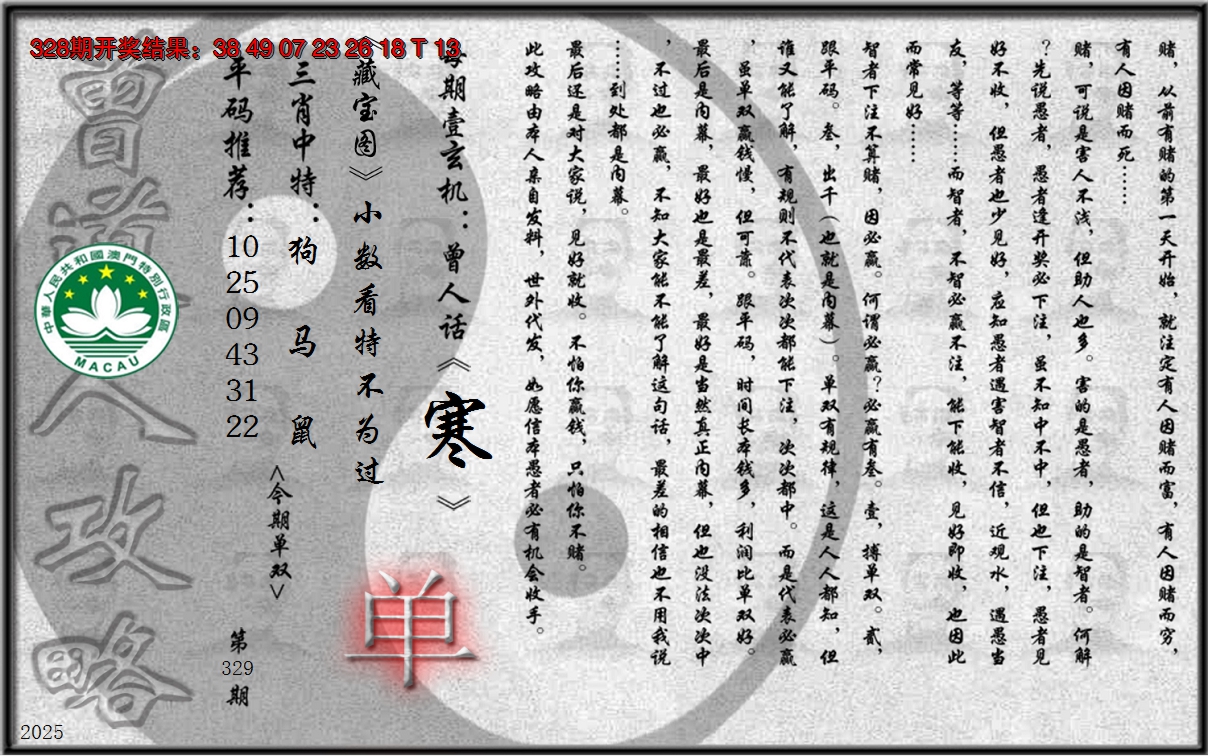 328期开奖结果：38 49 07 23 26 18 T 13
赌，从前有赌的第一天开始，就注定有人因赌而富，有人因赌而穷，
有人因赌而死……
赌，可说是害人不浅，但助人也多。害的是愚者，助的是智者。何解
？先说愚者，愚者逢开奖必下注，虽不知中不中，但也下注，愚者见
好不收，但愚者也少见好，应知愚者遇害智者不信，近观水，遇愚当
友，等等……而智者，不智必赢不注，能下能收，见好即收，也因此
而常见好……
智者下注不算赌，因必赢。何谓必赢？必赢有叁。壹，搏单双。贰，
跟平码。叁，出千（也就是内幕）。单双有规律，这是人人都知，但
谁又能了解，有规则不代表次次都能下注，次次都中。而是代表必赢
，虽单双赢钱慢，但可靠。跟平码，时间长本钱多，利润比单双好。
最后是内幕，最好也是最差，最好是当然真正内幕，但也没法次次中
，不过也必赢，不知大家能不能了解这句话，最差的相信也不用我说
……到处都是内幕。
最后还是对大家说，见好就收。不怕你赢钱，只怕你不赌。
此攻略由本人亲自发料，世外代发，如愿信本愚者必有机会收手。
每期壹玄机：曾人话《寒》
《藏宝图》小数看特不为过
单
三肖中特：狗 马 鼠
<今期单双>
平码推荐：10 25 09 43 31 22
第329期
曾道人攻略
中華人民共和國澳門特別行政區
MACAU
2025